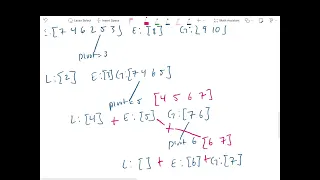 : [7 4 6 2 5 3] E: [8] G: [9 10]
pivot = 3
L: [2] E: [3] G: [7 4 6 5]
pivot = 5 [4 5 6 7]
L: [4] + E: [5] + G: [7 6]
pivot 6 [6 7]
L: [ ] + E: [6] + G: [7]